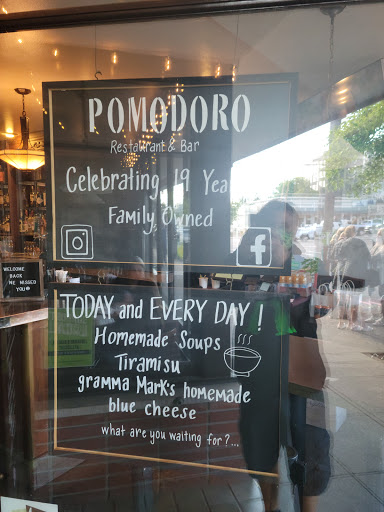 POMODORO
Restaurant & Bar
Celebrating 19 Yea
Family Owned
WELCOME
BACK
WE MISSED
YOU
TODAY and EVERY DAY!
Homemade Soups
Tiramisu
gramma Mark's homemade
blue cheese
what are you waiting for?...